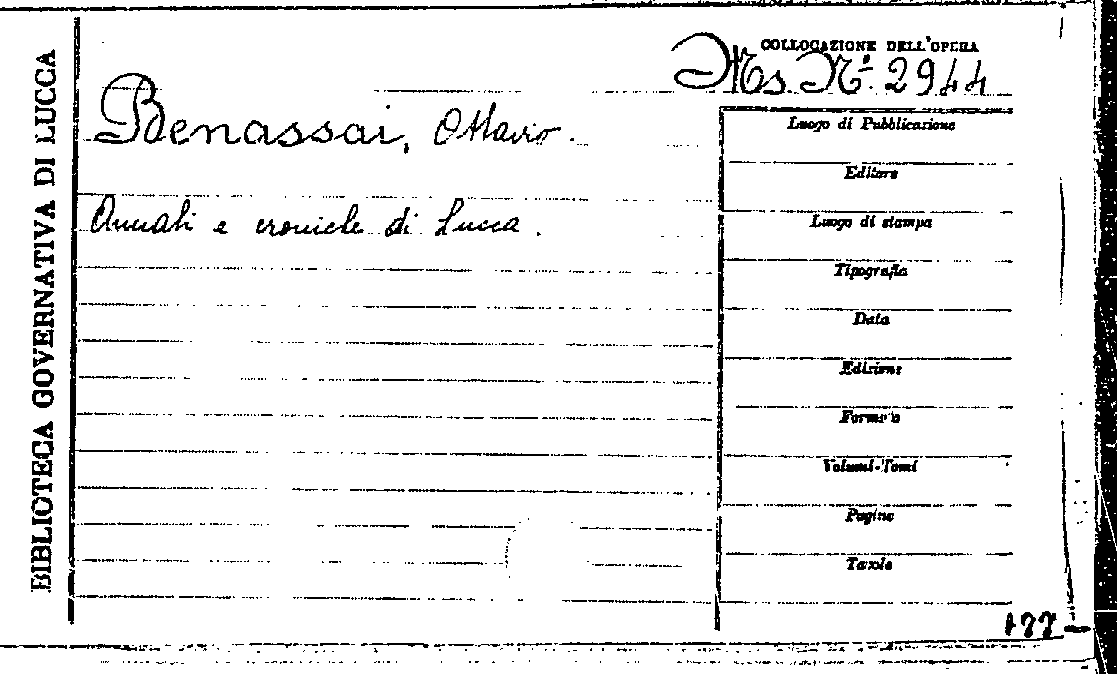 BIBLIOTECA GOVERNATIVA DI LUCCA
COLLOCAZIONE DELL'OPERA
Ms. Nº. 2944
Benassai, Ottavio.
Annali e croniche di Lucca.
Luogo di Pubblicazione
Editore
Luogo di stampa
Tipografia
Data
Edizione
Formato
Volumi-Tomi
Pagine
Tavole